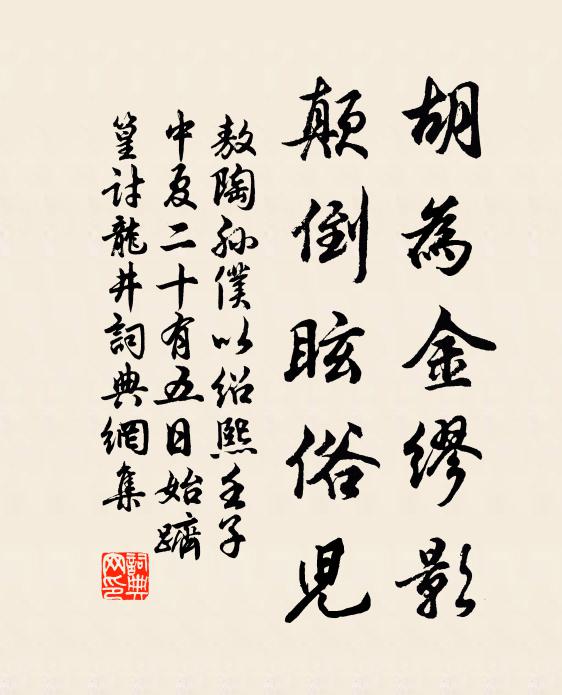 胡為金繆影
顛倒眩俗児
敖陶孫僕以紹熙壬子
中夏二十有五日始躋
篁討龍井詞典網集
詞典網印